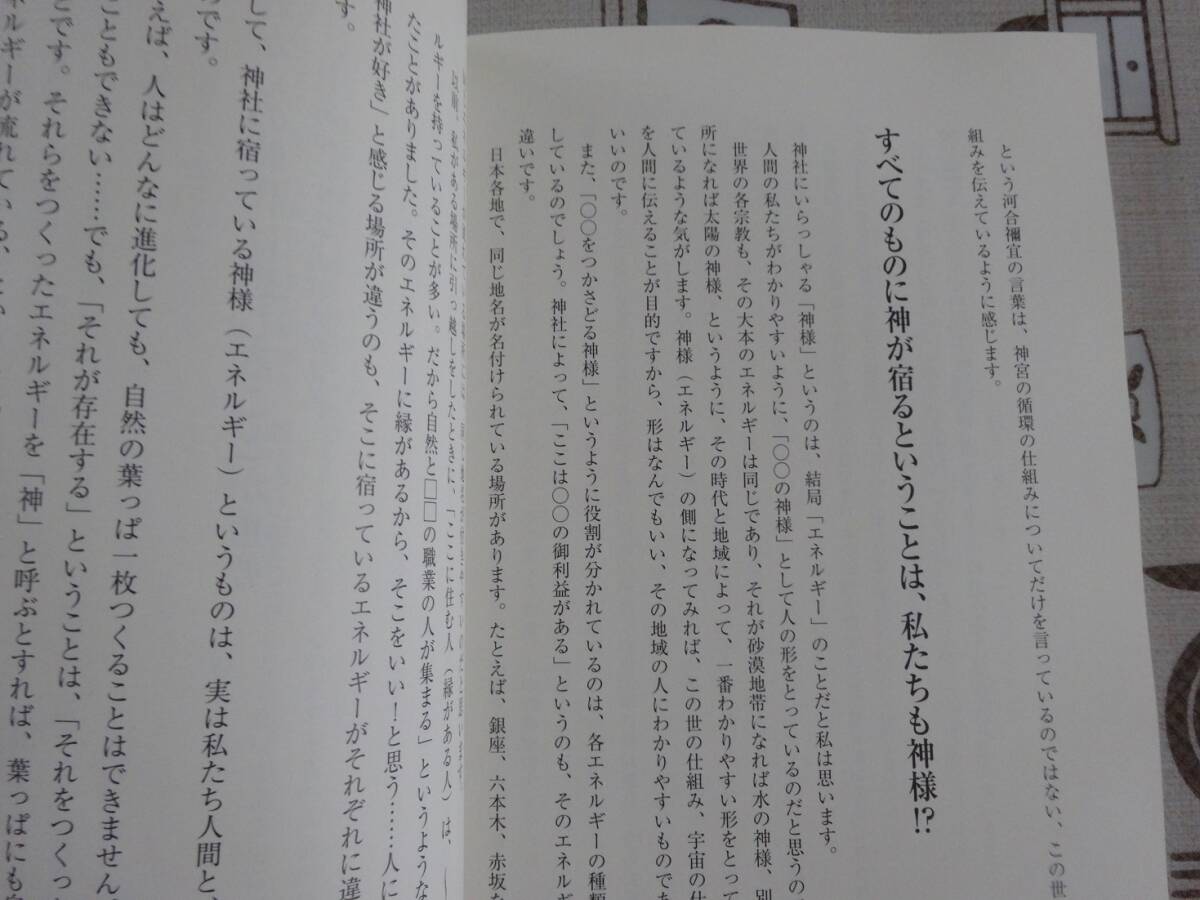 という河合禰宜の言葉は、神宮の循環の仕組みについてだけを言っているのではない、この世
組みを伝えているように感じます。
すべてのものに神が宿るということは、私たちも神様!?
神社にいらっしゃる「神様」というのは、結局「エネルギー」のことだと私は思います。
人間の私たちがわかりやすいように、「〇〇の神様」として人の形をとっているのだと思うの
世界の各宗教も、その大本のエネルギーは同じであり、それが砂漠地帯になれば水の神様、別
所になれば太陽の神様、というように、その時代と地域によって、一番わかりやすい形をとって
ているような気がします。神様(エネルギー)の側になってみれば、この世の仕組み、宇宙の仕
を人間に伝えることが目的ですから、形はなんでもいい、その地域の人にわかりやすいものであ
いいのです。
また、「〇〇をつかさどる神様」というように役割が分かれているのは、各エネルギーの種類
しているのでしょう。神社によって、「ここは〇〇の御利益がある」というのも、そのエネルギ
違いです。
日本各地で、同じ地名が名付けられている場所があります。たとえば、銀座、六本木、赤坂な
以前、私がある場所に引っ越しをしたときに、「ここに住む人(縁がある人)は、
ルギーを持っていることが多い。だから自然と□□の職業の人が集まる」というような
たことがありました。そのエネルギーに縁があるから、そこをいい!と思う……人に
神社が好き」と感じる場所が違うのも、そこに宿っているエネルギーがそれぞれに違
す。
して、神社に宿っている神様(エネルギー)というものは、実は私たち人間と
のです。
えば、人はどんなに進化しても、自然の葉っぱ一枚つくることはできません
こともできない……でも、「それが存在する」ということは、「それをつくっ
とです。それらをつくったエネルギーを「神」と呼ぶとすれば、葉っぱにも
ネルギーが流れている、